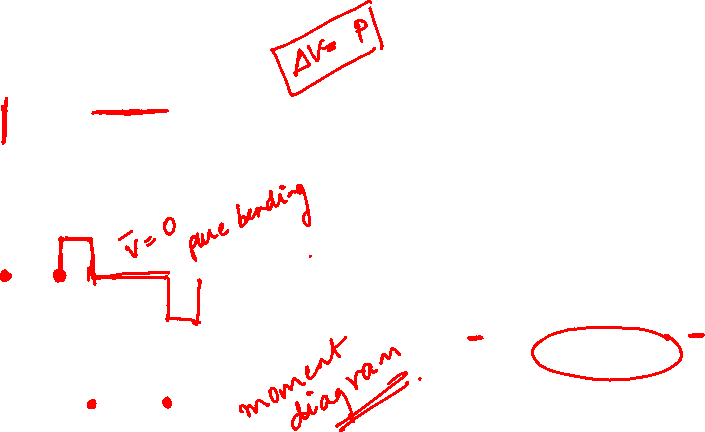 ΔV= P
V=0 pure bending
moment
diagram